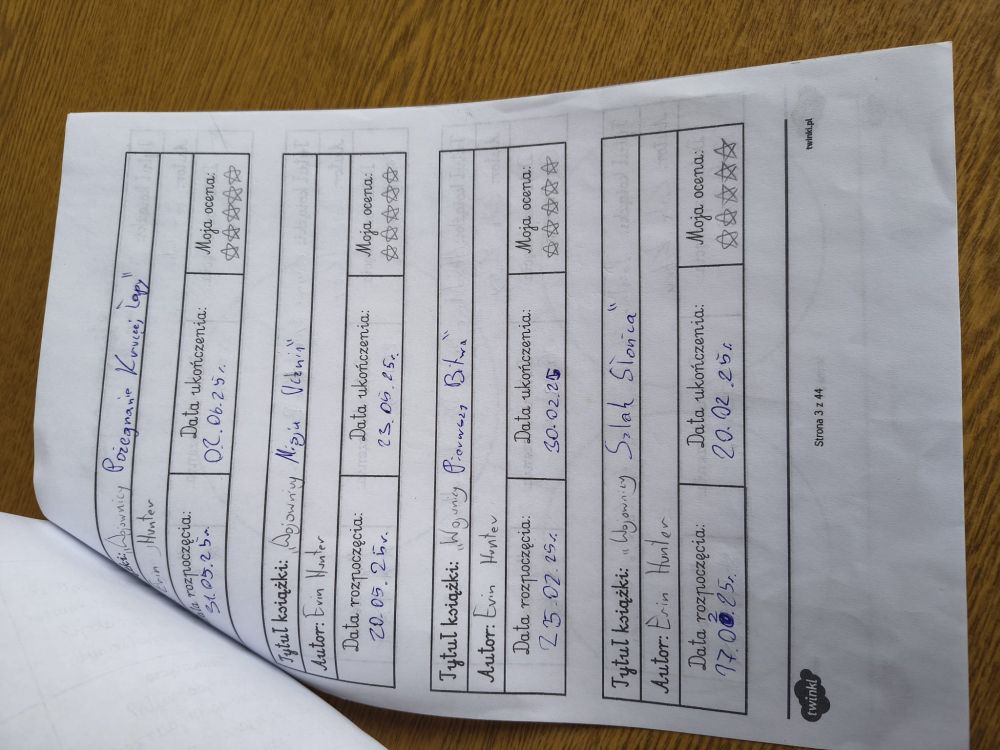 „Wojownicy Pożegnanie Kruczej Łapy"
Erin Hunter
Data rozpoczęcia: Data ukończenia: Moja ocena:
31.05.25r. 02.06.25r.
Tytuł książki: „Wojownicy Misja Ucznia"
Autor: Erin Hunter
Data rozpoczęcia: Data ukończenia: Moja ocena:
20.05.25r. 23.05.25r.
Tytuł książki: „Wojownicy Pierwsza Bitwa"
Autor: Erin Hunter
Data rozpoczęcia: Data ukończenia: Moja ocena:
25.02.25r. 30.02.25
Tytuł książki: „Wojownicy Szlak Słońca"
Autor: Erin Hunter
Data rozpoczęcia: Data ukończenia: Moja ocena:
17.02.25r. 20.02.25r.
twinkl Strona 3 z 44 twinkl.pl